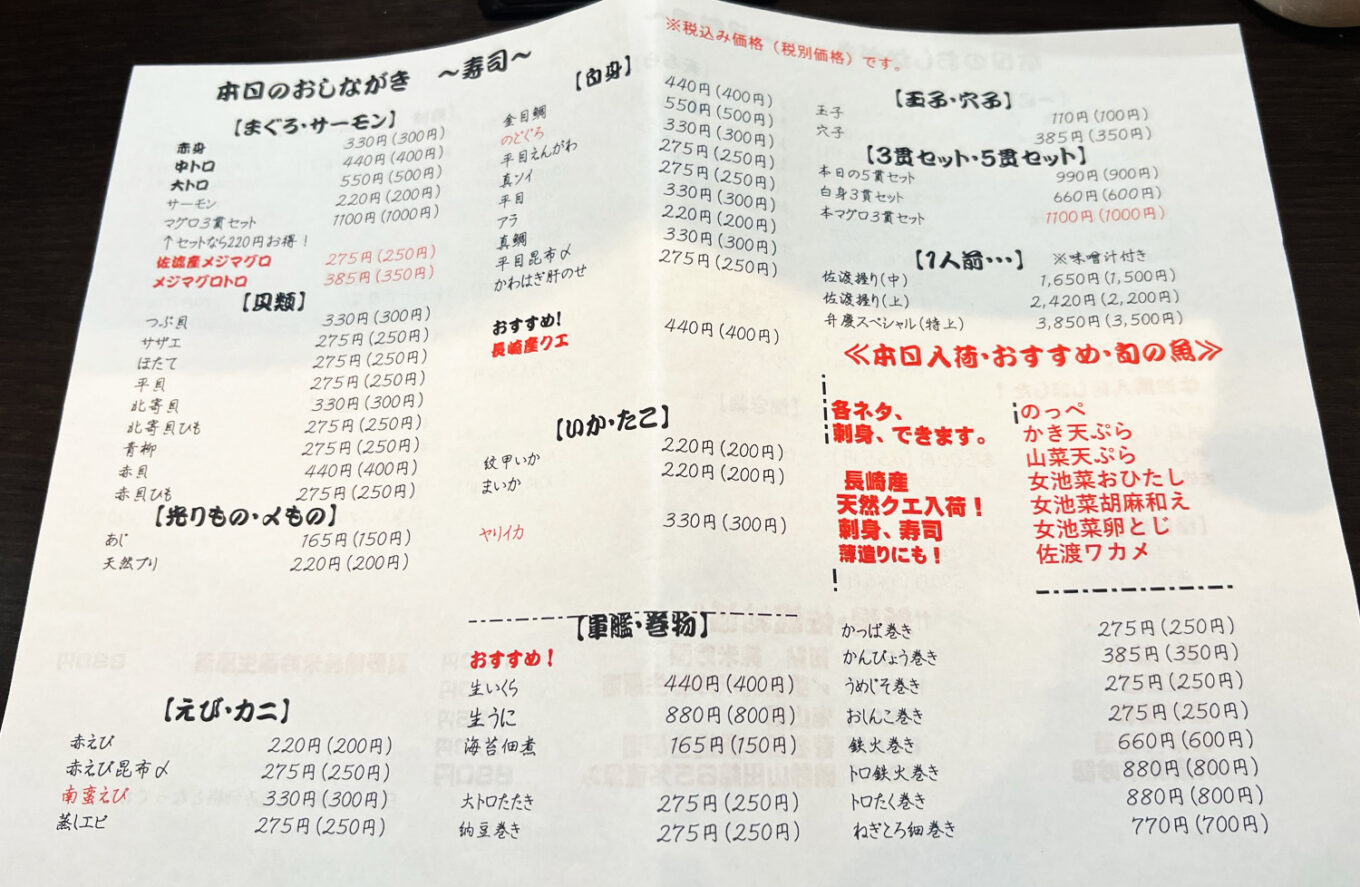 本日のおしながき ～寿司～
※税込み価格（税別価格）です。
【まぐろ・サーモン】
赤身 330円(300円)
中トロ 440円(400円)
大トロ 550円(500円)
サーモン 220円(200円)
マグロ3貫セット 1100円(1000円)
↑セットなら220円お得！
佐渡産メジマグロ 275円(250円)
メジマグロトロ 385円(350円)
【貝類】
つぶ貝 330円(300円)
サザエ 275円(250円)
ほたて 275円(250円)
平貝 275円(250円)
北寄貝 330円(300円)
北寄貝ひも 275円(250円)
青柳 275円(250円)
赤貝 440円(400円)
赤貝ひも 275円(250円)
【光りもの・〆もの】
あじ 165円(150円)
天然ブリ 220円(200円)
【えび・カニ】
赤えび 220円(200円)
赤えび昆布〆 275円(250円)
南蛮えび 330円(300円)
蒸しエビ 275円(250円)
【白身】
金目鯛 440円(400円)
のどぐろ 550円(500円)
平目えんがわ 330円(300円)
真ソイ 275円(250円)
平目 275円(250円)
アラ 330円(300円)
真鯛 220円(200円)
平目昆布〆 330円(300円)
かわはぎ肝のせ 275円(250円)
おすすめ!
長崎産クエ 440円(400円)
【いか・たこ】
紋甲いか 220円(200円)
まいか 220円(200円)
ヤリイカ 330円(300円)
【軍艦・巻物】
おすすめ！
生いくら 440円(400円)
生うに 880円(800円)
海苔佃煮 165円(150円)
大トロたたき 275円(250円)
納豆巻き 275円(250円)
【玉子・穴子】
玉子 110円(100円)
穴子 385円(350円)
【3貫セット・5貫セット】
本日の5貫セット 990円(900円)
白身3貫セット 660円(600円)
本マグロ3貫セット 1100円(1000円)
【1人前…】 ※味噌汁付き
佐渡握り(中) 1,650円(1,500円)
佐渡握り(上) 2,420円(2,200円)
弁慶スペシャル(特上) 3,850円(3,500円)
≪本日入荷・おすすめ・旬の魚≫
各ネタ、
刺身、できます。
長崎産
天然クエ入荷！
刺身、寿司
薄造りにも！
のっぺ
かき天ぷら
山菜天ぷら
女池菜おひたし
女池菜胡麻和え
女池菜卵とじ
佐渡ワカメ
かっぱ巻き 275円(250円)
かんぴょう巻き 385円(350円)
うめじそ巻き 275円(250円)
おしんこ巻き 275円(250円)
鉄火巻き 660円(600円)
トロ鉄火巻き 880円(800円)
トロたく巻き 880円(800円)
ねぎとろ細巻き 770円(700円)